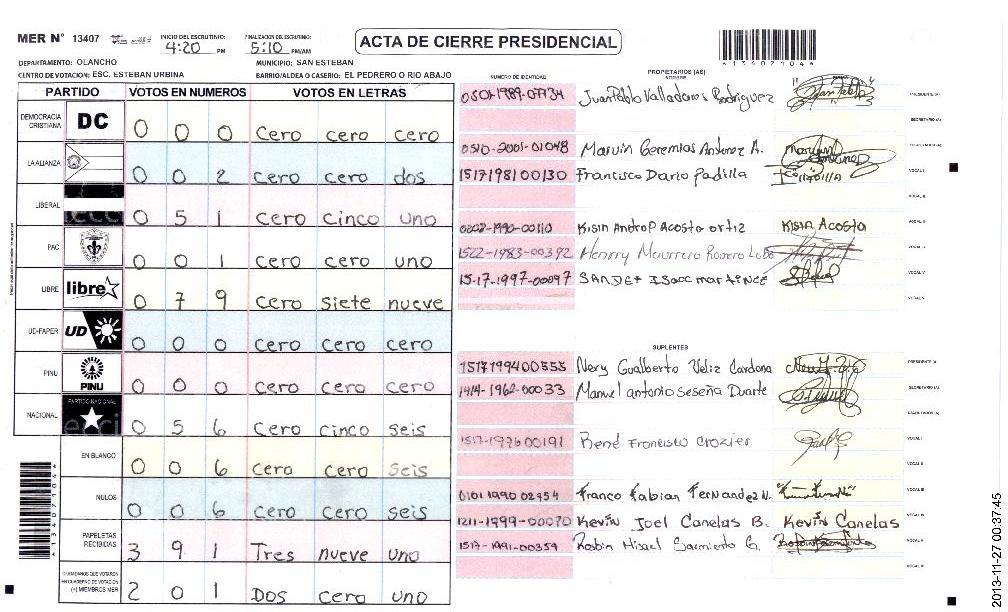 MER N° 13407
INICIO DEL ESCRUTINIO: 4:20 PM
FINALIZACION DEL ESCRUTINIO: 5:10 PM/AM
ACTA DE CIERRE PRESIDENCIAL
DEPARTAMENTO: OLANCHO
MUNICIPIO: SAN ESTEBAN
CENTRO DE VOTACION: ESC. ESTEBAN URBINA
BARRIO/ALDEA O CASERIO: EL PEDRERO O RIO ABAJO
PARTIDO VOTOS EN NUMEROS VOTOS EN LETRAS
DEMOCRACIA CRISTIANA DC 0 0 0 Cero cero cero
LA ALIANZA 0 0 2 Cero cero dos
LIBERAL 0 5 1 Cero cinco uno
PAC 0 0 1 Cero cero uno
LIBRE libre 0 7 9 Cero siete nueve
UD-FAPER UD 0 0 0 Cero cero cero
PINU PINU 0 0 0 Cero cero cero
NACIONAL PARTIDO NACIONAL 0 5 6 Cero cinco seis
EN BLANCO 0 0 6 Cero cero seis
NULOS 0 0 6 Cero cero seis
PAPELETAS RECIBIDAS 3 9 1 Tres nueve uno
CIUDADANOS QUE VOTARON EN CUADERNO DE VOTACION (+) MIEMBROS MER 2 0 1 Dos cero uno
NUMERO DE IDENTIDAD
PROPIETARIOS (AS)
NOMBRE
0501-1989-07734 Juan Pablo Valladares Rodriguez PRESIDENTE (A)
SECRETARIO (A)
0510-2001-01048 Marvin Geremias Antunez A.
1517198100130 Francisco Dario Padilla VOCAL I
VOCAL II
0202-1990-00110 Kisin Androp Acosta ortiz Kisin Acosta
1522-1983-00392 Henrry Mauricio Romero Lobo
15-17-1997-00097 VOCAL V
SUPLENTES
1517199400555 Nery Gualberto Veliz Cardona PRESIDENTE (A)
1414-1962-00033 Manuel antonio Seseña Duarte SECRETARIO (A)
1517-1976 00191 René Francisco Crozier VOCAL I
0101 1990 02954 Franco Fabian Fernandez N.
1211-1999-00070 Kevin Joel Canelas B. Kevin Canelas
1517-1991-00359 Rosbin Misael Sarmiento G.
2013-11-27 00:37:45